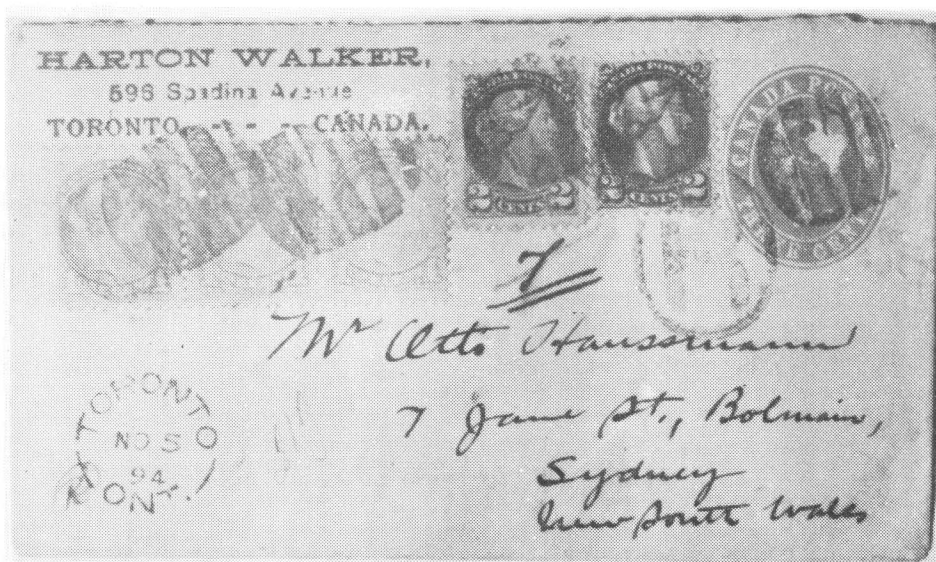 HARTON WALKER,
596 Spadina Avenue
TORONTO, - - - CANADA.
CANADA POSTAGE
2 CENTS 2
CANADA POSTAGE
2 CENTS 2
CANADA POSTAGE
ONE CENT
R
7
Mr Otto Haussmann
7 Jane St., Bolmain,
Sydney
New South Wales
TORONTO
NO 5
94
ONT.